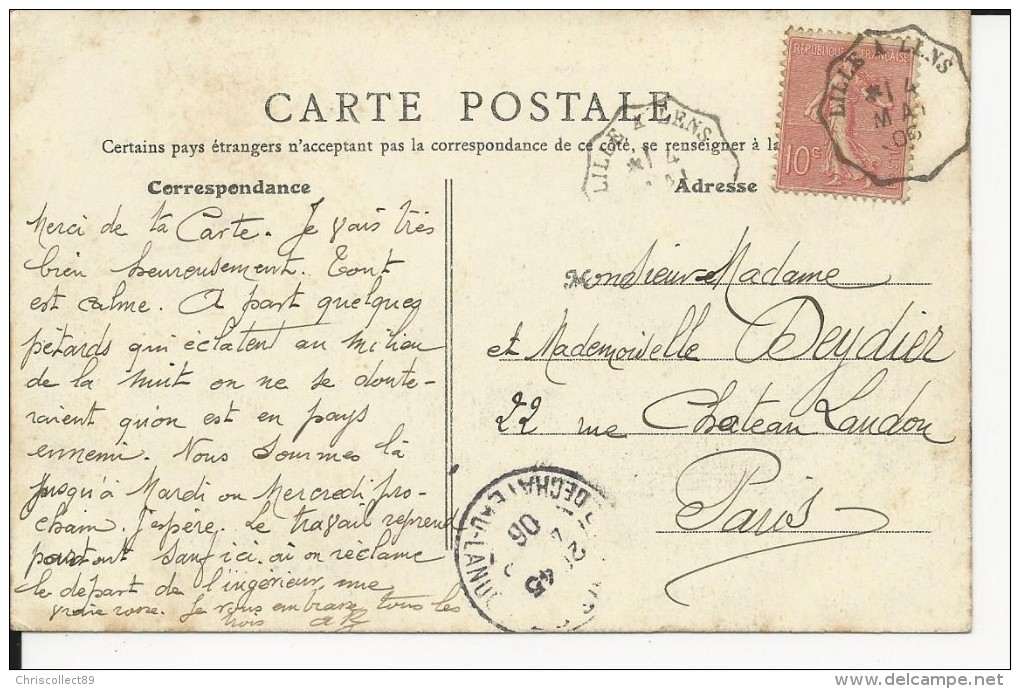 RÉPUBLIQUE FRANÇAISE
10c
LILLE A LENS
4
MAI
06
CARTE POSTALE
LILLE A LENS
4
Certains pays étrangers n'acceptant pas la correspondance de ce côté, se renseigner à la
Correspondance
Adresse
Merci de ta Carte. Je vais très
bien heureusement. Tout
est calme. A part quelques
pétards qui éclatent au milieu
de la nuit on ne se doute-
raient qu'on est en pays
ennemi. Nous sommes là
jusqu'à Mardi ou Mercredi pro-
chain. J'espère. Le travail reprend
partout sauf ici. où on réclame
le départ de l'ingénieur, une
vraie rosse. Je vous embrasse tous les
trois
Monsieur Madame
et Mademoiselle Deydier
22 rue Chateau Landon
Paris
R. DE CHATEAU-LANDON
06
45
Chriscollect89
delcampe.net